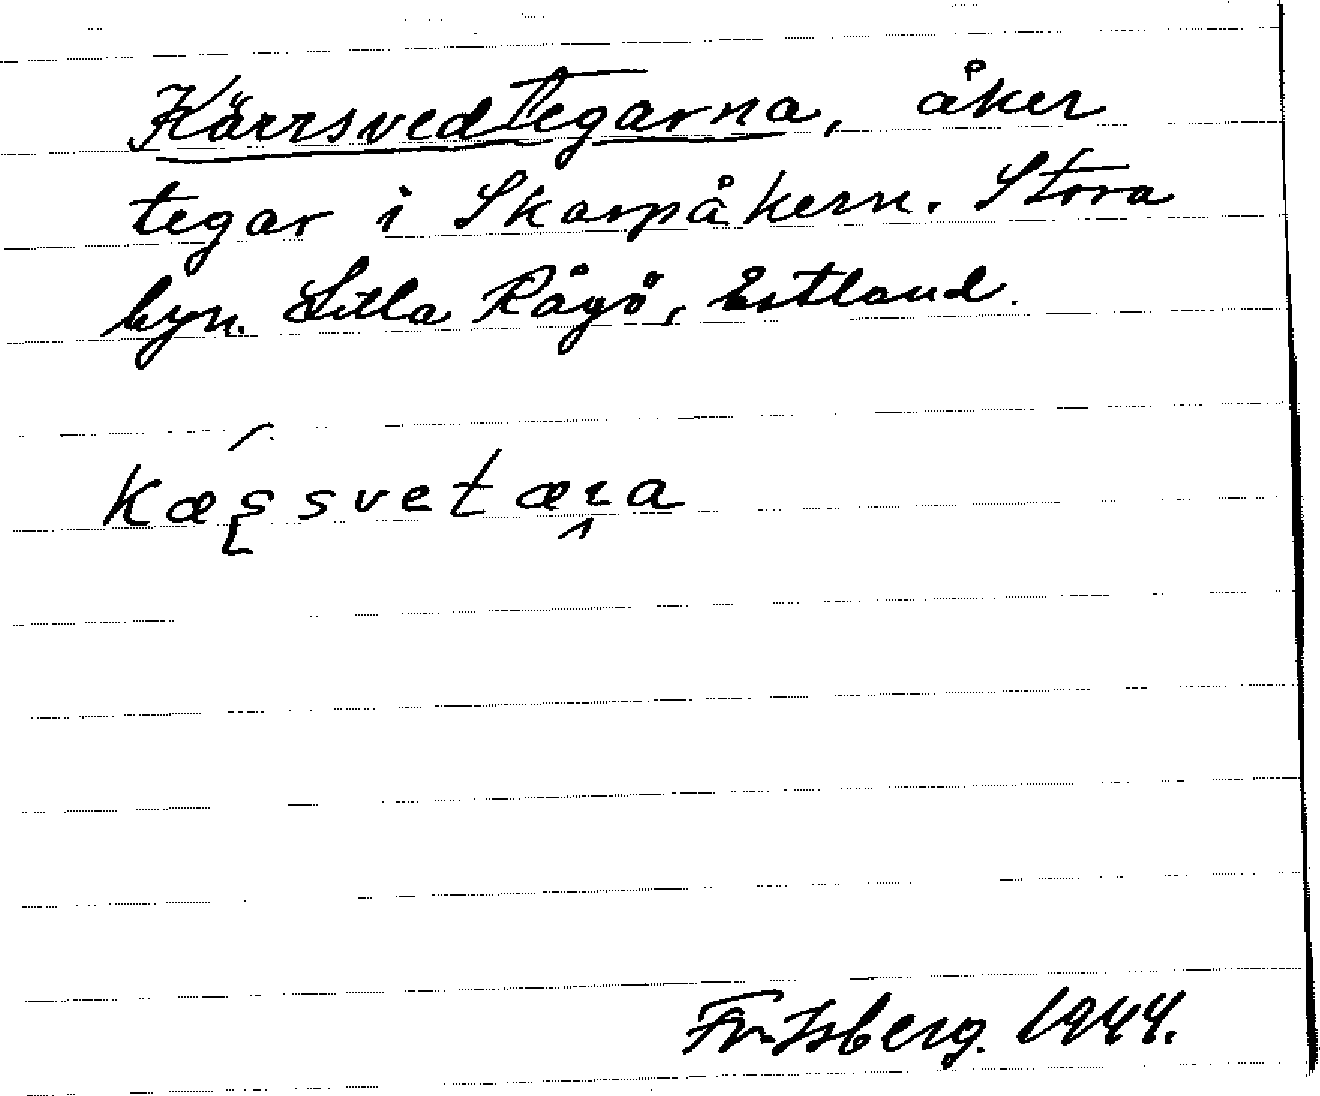 Kärrsvedtegarna, åker
tegar i Skarpåkern. Stora
byn. Lilla Rågö, Estland.
kæʂsvetæɾa
Fr. Isberg. 1944.